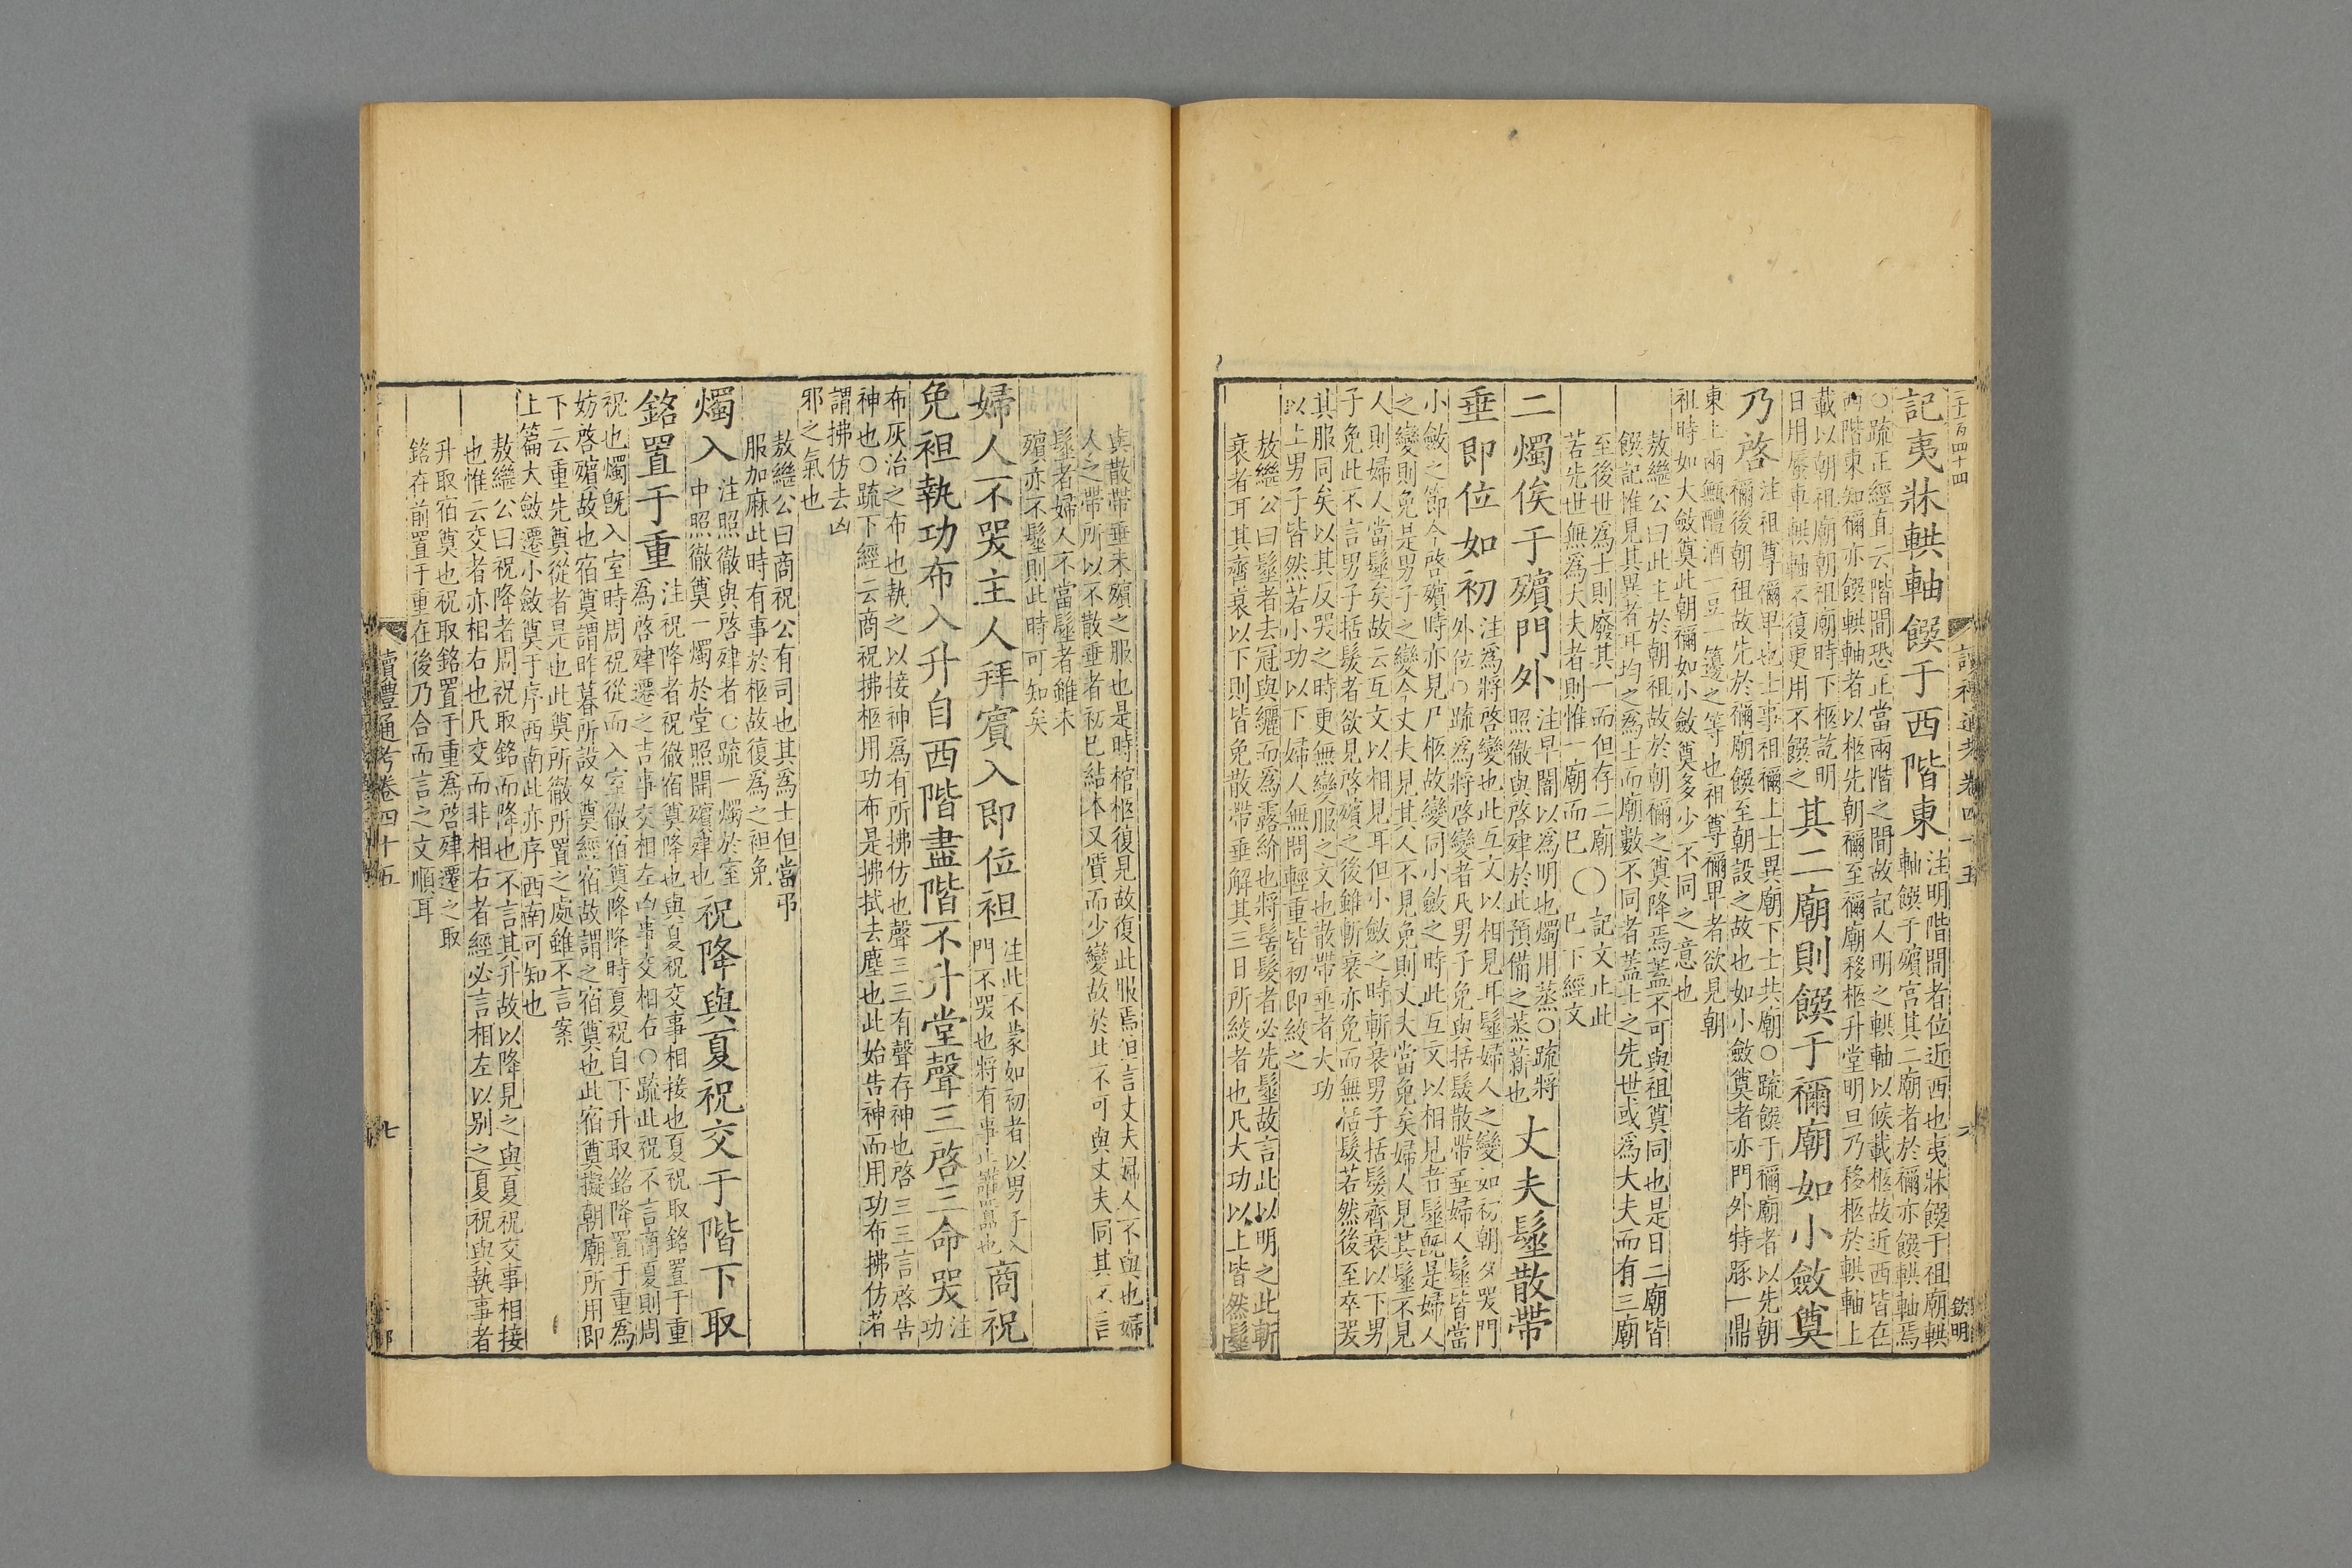 二千二百四十四
讀禮通考卷四十五
六
欽明
記夷牀輁軸饌于西階東
注明階間者位近西也夷牀饌于祖廟輁
軸饌于殯宮其二廟者於禰亦饌輁軸焉
○疏正經直云階間恐正當兩階之間故記人明之輁軸以候載柩故近西皆在
西階東知禰亦饌輁軸者以柩先朝禰至禰廟移柩升堂明旦乃移柩於輁軸上
載以朝祖廟朝祖廟時下柩訖明
日用蜃車輁軸不復更用不饌之
其二廟則饌于禰廟如小斂奠
乃啓
注祖尊禰卑也士事祖禰上士異廟下士共廟○疏饌于禰廟者以先朝
禰後朝祖故先於禰廟饌至朝設之故也如小斂奠者亦門外特豚一鼎
東上兩甒醴酒一豆一籩之等也祖尊禰卑者欲見朝
祖時如大斂奠此朝禰如小斂奠多少不同之意也
敖繼公曰此主於朝祖故於朝禰之奠降焉蓋不可與祖奠同也是日二廟皆
饌記惟見其異者耳均之爲士而廟數不同者蓋士之先世或爲大夫而有三廟
至後世爲士則廢其一而但存二廟
若先世無爲大夫者則惟一廟而已
○
記文止此
已下經文
二燭俟于殯門外
注早闇以爲明也燭用蒸○疏將
照徹與啓肂於此預備之蒸薪也
丈夫髽散帶
垂即位如初
注爲將啓變也此互文以相見耳髽婦人之變如初朝夕哭門
外位○疏爲將啓變者凡男子免與括髮散帶垂婦人髽皆當
小斂之節今啓殯時亦見尸柩故變同小斂之時此互文以相見者髽既是婦人
之變則免是男子之變今丈夫見其人不見免則丈夫當免矣婦人見其髽不見
人則婦人當髽矣故云互文以相見耳但小斂之時斬衰男子括髮齊衰以下男
子免此不言男子括髮者欲見啓殯之後雖斬衰亦免而無括髮若然後至卒哭
其服同矣以其反哭之時更無變服之文也散帶垂者大功
以上男子皆然若小功以下婦人無問輕重皆初即絞之
敖繼公曰髽者去冠與纚而爲露紒也將髻髮者必先髽故言此以明之此斬
衰者耳其齊衰以下則皆免散帶垂解其三日所絞者也凡大功以上皆然髽
與散帶垂未殯之服也是時棺柩復見故復此服焉惟言丈夫婦人不與也婦
人之帶所以不散垂者初已結本又質而少變故於此不可與丈夫同其不言
髽者婦人不當髽者雖未
殯亦不髽則此時可知矣
婦人不哭主人拜賓入即位袒
注此不蒙如初者以男子入
門不哭也將有事止讙嚻也
商祝
免袒執功布入升自西階盡階不升堂聲三啓三命哭
注
功
布灰治之布也執之以接神爲有所拂仿也聲三三有聲存神也啓三三言啓告
神也○疏下經云商祝拂柩用功布是拂拭去塵也此始告神而用功布拂仿者
謂拂仿去凶
邪之氣也
敖繼公曰商祝公有司也其爲士但當弔
服加麻此時有事於柩故復爲之袒免
燭入
注照徹與啓肂者○疏一燭於室
中照徹奠一燭於堂照開殯肂也
祝降與夏祝交于階下取
銘置于重
注祝降者祝徹宿奠降也與夏祝交事相接也夏祝取銘置于重
爲啓肂遷之吉事交相左凶事交相右○疏此祝不言商夏則周
祝也燭既入室時周祝從而入室徹宿奠降降時夏祝自下升取銘降置于重爲
妨啓殯故也宿奠謂昨暮所設夕奠經宿故謂之宿奠也此宿奠擬朝廟所用即
下云重先奠從者是也此奠所徹所置之處雖不言案
上篇大斂遷小斂奠于序西南此亦序西南可知也
敖繼公曰祝降者周祝取銘而降也不言其升故以降見之與夏祝交事相接
也惟云交者亦相右也凡交而非相右者經必言相左以别之夏祝與執事者
升取宿奠也祝取銘置于重爲啓肂遷之取
銘在前置于重在後乃合而言之文順耳
讀禮通考卷四十五
七